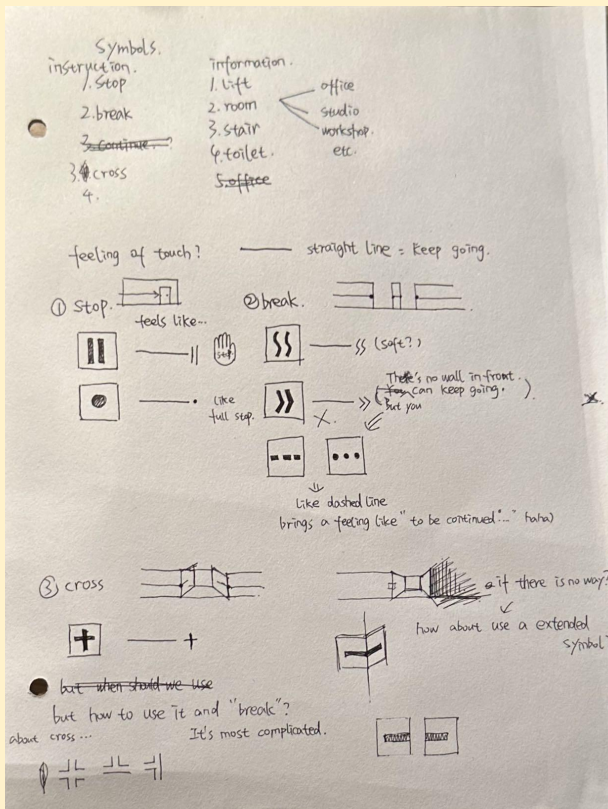 Symbols.
instruction.
1. Stop
2. break
3. continue. ?
3. 4. cross
4.
information.
1. Lift
2. room
3. stair
4. toilet.
5. office
office
studio
workshop.
etc.
feeling of touch?
straight line = keep going.
① Stop.
feels like...
stop
like
full stop.
② break.
(soft?)
There's no wall in front.
You can keep going.
But you
Like dashed line
brings a feeling like "to be continued..." haha)
③ cross
if there is no way?
how about use a extended
symbol?
but when should we use
but how to use it and "break"?
about cross...
It's most complicated.